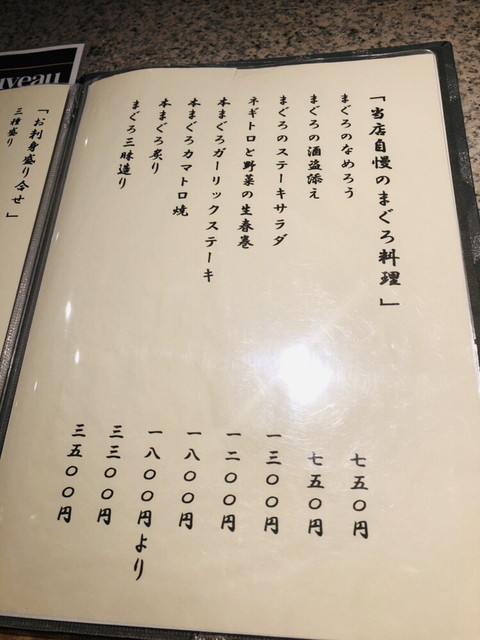 「当店自慢のまぐろ料理」
まぐろのなめろう 七五〇円
まぐろの酒盗添え 七五〇円
まぐろのステーキサラダ 一三〇〇円
ネギトロと野菜の生春巻 一二〇〇円
本まぐろガーリックステーキ 一八〇〇円
本まぐろカマトロ焼 一八〇〇円より
本まぐろ炙り 三三〇〇円
まぐろ三昧造り 三五〇〇円
「お刺身盛り合せ」
三種盛り